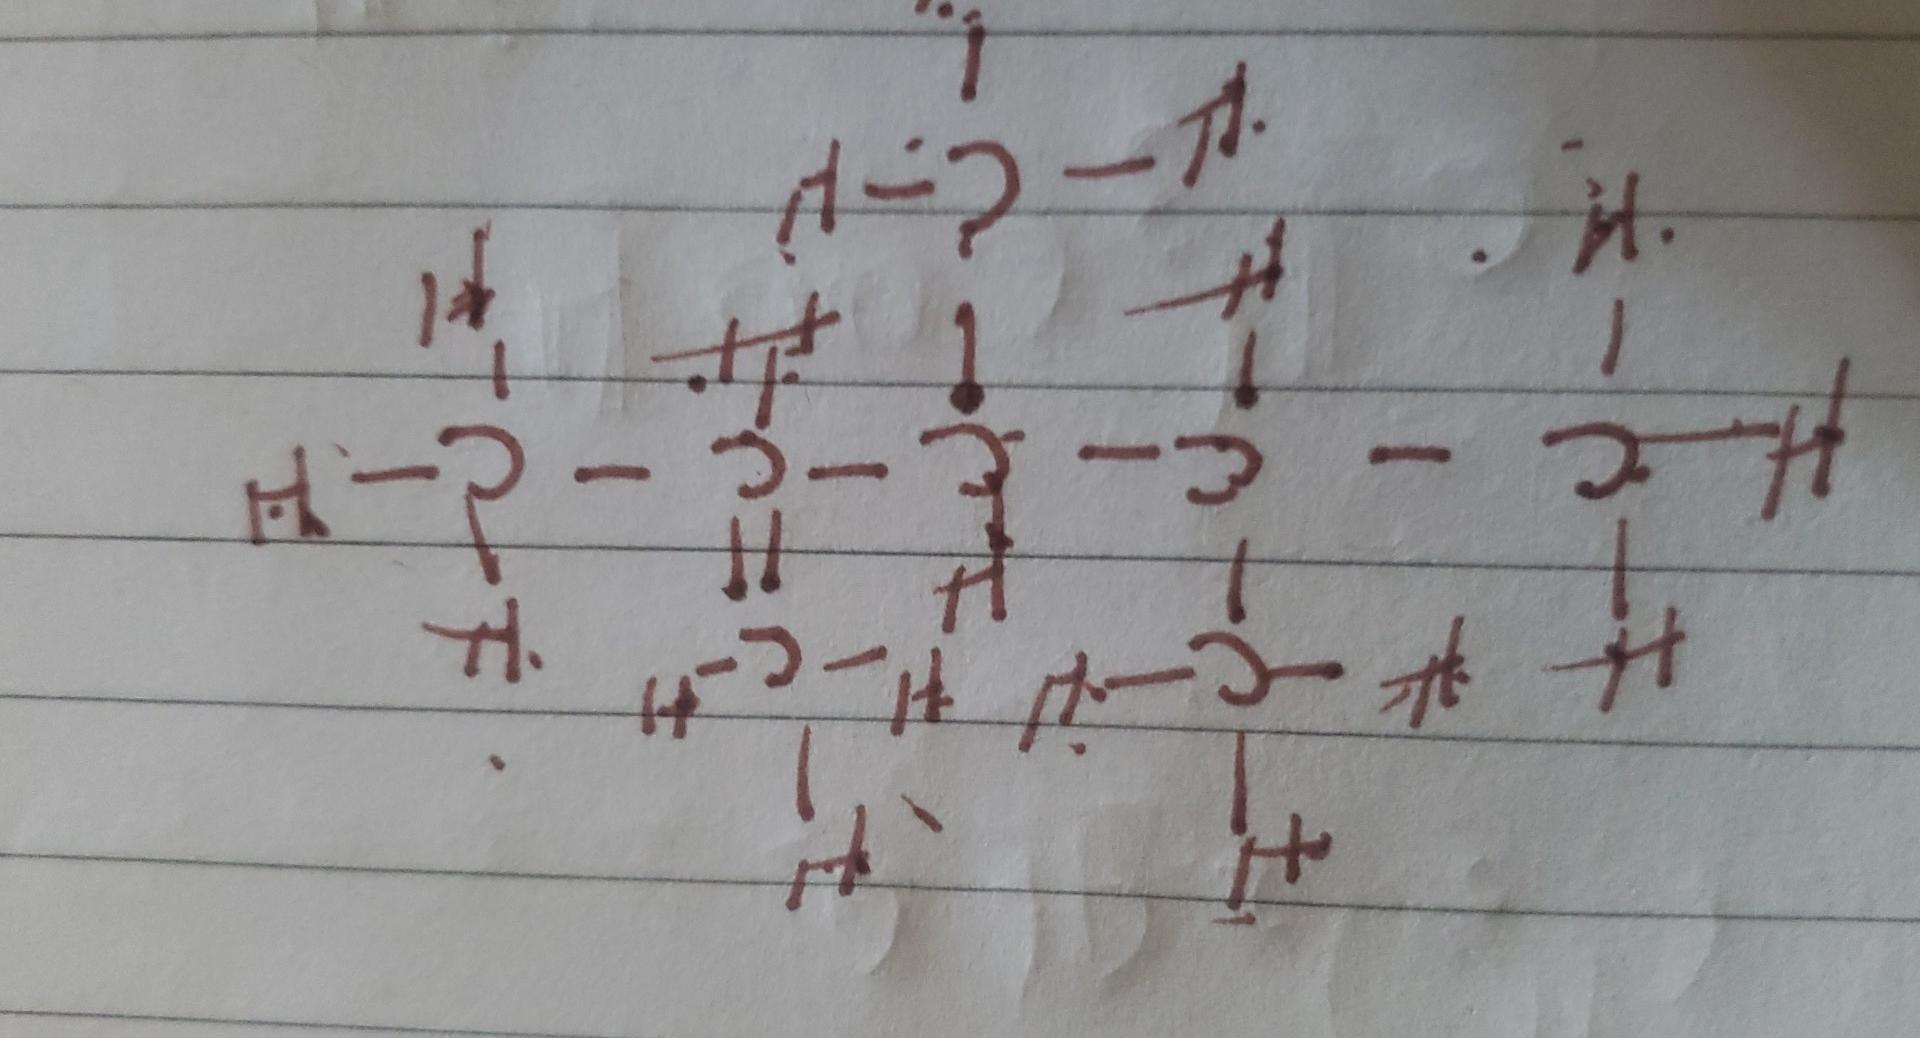 H - C - H
H H H H
H - C - C - C - C - C - H
H H H
H - C - H H - C - H
H H